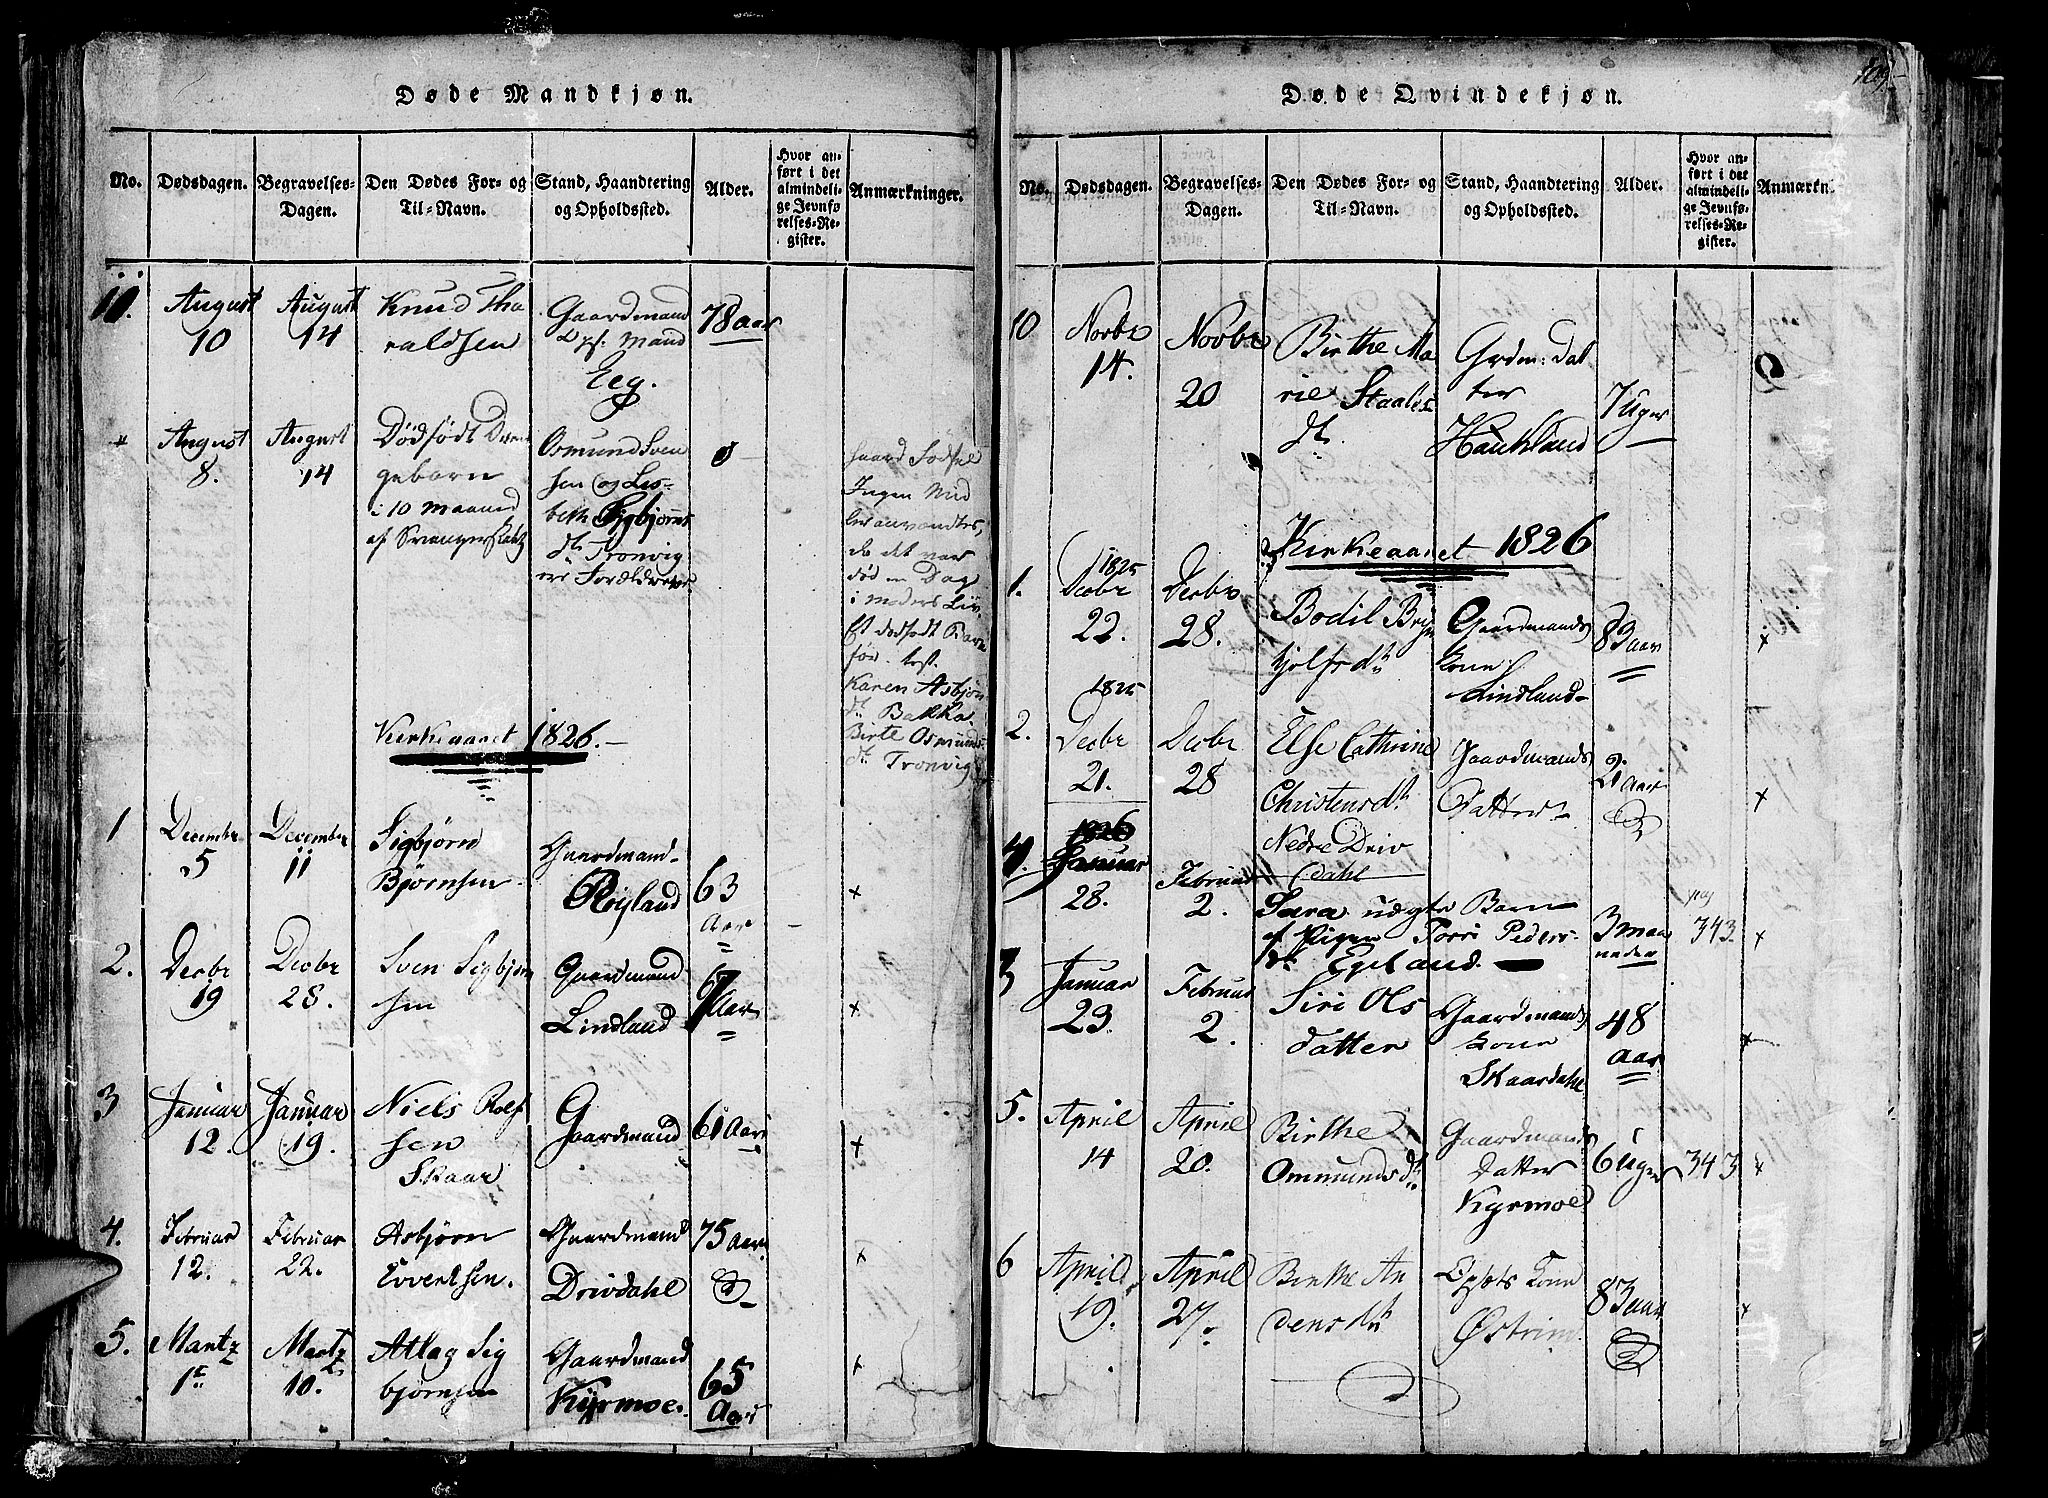 Døde Mandkjøn.
No.
Dødsdagen.
Begravelses-
Dagen.
Den Dødes For- og
Til-Navn.
Stand, Haandtering
og Opholdssted.
Alder.
Hvor an-
ført i det
almindeli-
ge Jevnfø-
relses-Re-
gister.
Anmærkninger.
11.
August
10
August
14
Knud Tha
raldsen
Gaardmand
Mand
Eeg.
78 aar
August
8.
August
14
Dødfødt
gebarn
i 10 Maaned
af
Osmund Sven
sen og Lis-
beth Sigbjørns
dtr Tronvig
ere Forældrene
haard Fødsel
Ingen Mid
ler anvendtes,
da det var
død en Dag
i Moders Liv.
Et dødfødt Barn
før. test.
Karen Asbjørn
dtr Bakka.
Birte Osmunds
dtr Tronvig
Kirkeaaret 1826.-
1
December
5
December
11
Sigbjørn
Bjørnsen
Gaardmand-
Røyland
63
Aar
2.
Decbr
19
Decbr
28.
Sven Sigbjørn
sen
Gaardmand
Lindland
67 Aar
3
Januar
12.
Januar
19.
Niels Rolf
sen
Skaar
Gaardmand
61 Aar
4.
Februar
12.
Februar
22.
Asbjørn
Evertsen.
Gaardmand
Drivdahl
75 aar
5.
Martz
1te
Martz
10.
Atlag Sig
bjørnsen
Gaardmand
Kyrmoe.
65
Aar
Døde Qvindekjøn.
No.
Dødsdagen.
Begravelses-
Dagen.
Den Dødes For- og
Til-Navn.
Stand, Haandtering
og Opholdssted.
Alder.
Hvor an-
ført i det
almindeli-
ge Jevnfø-
relses-Re-
gister.
Anmærkn.
10
Novbr
14.
Novbr
20
Birthe Ma
rie Staales
dtr.
Grdm: Dat
ter
Haukland
7 Uger
Kirkeaaret 1826
1.
1825
Decbr
22.
Decbr
28.
Bodil Bryn
hjolfsdtr
Gaardmands
kone
Lindland
83 aar
2.
1825
Decbr
21.
Decbr
28
Else Cathrine
Christensdtr
Nedre Driv
dahl
Gaardmands
Datter
2 Aar
4.
1826
Januar
28.
Februar
2.
Sara uægte Barn
af Pigen Torri Peders-
dtr Egeland.
3 maa
neder
pag
343.
3
Januar
23.
Februar
2.
Siri Ols
datter
Gaardmands
kone
Skaardahl
48
aar
5.
April
14
April
20.
Birthe
Ommundsdtr
Gaardmands
datter
Kyrmoe
6 Uger
343
6
April
19.
April
27.
Birthe An
densdtr
Kone
Østrim
83 aar